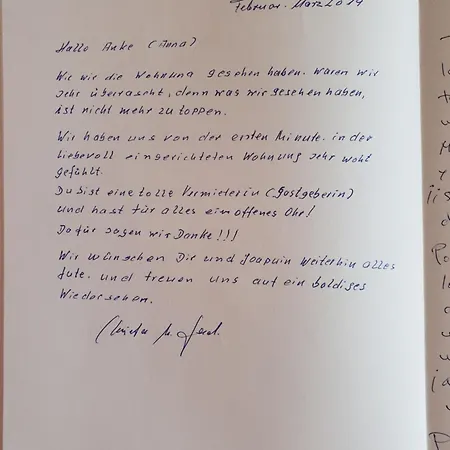 Februar. März 2019
Hallo Anke (Mona)
Wie wir die Wohnung gesehen haben. waren wir
sehr überrascht, denn was wir gesehen haben,
ist nicht mehr zu toppen.
Wir haben uns von der ersten Minute. in der
liebevoll eingerichteten Wohnung sehr wohl
gefühlt.
Du bist eine tolle Vermieterin (Gastgeberin)
und hast für alles ein offenes Ohr!
Dafür sagen wir Danke!!!
Wir wünschen Dir und Joaquin weiterhin alles
Gute. und freuen uns auf ein baldiges
Wiedersehen.